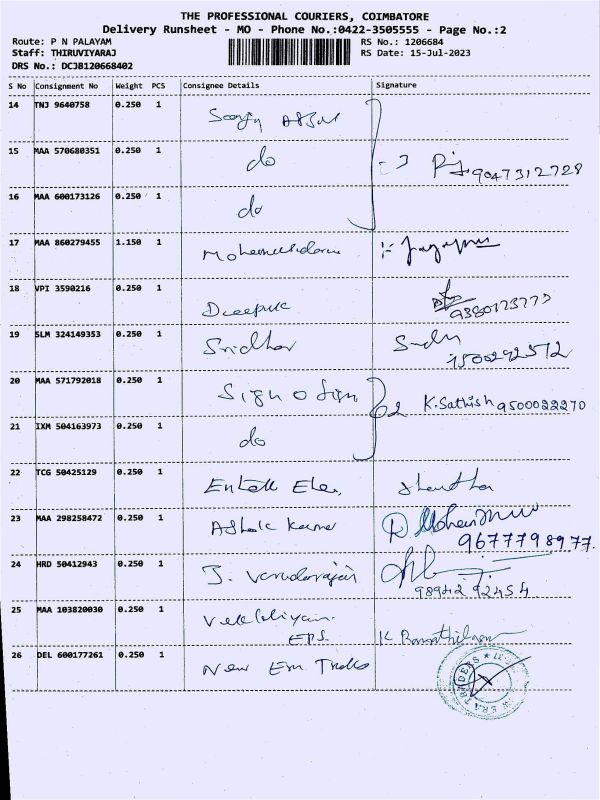 THE PROFESSIONAL COURIERS, COIMBATORE
Delivery Runsheet - MO - Phone No.:0422-3505555 - Page No.:2
Route: P N PALAYAM RS No.: 1206684
Staff: THIRUVIYARAJ RS Date: 15-Jul-2023
DRS No.: DCJB120668402
S No Consignment No Weight PCS Consignee Details Signature
14 TNJ 9640758 0.250 1
15 MAA 570680351 0.250 1 do 9047312728
16 MAA 600173126 0.250 1 do
17 MAA 860279455 1.150 1
18 VPI 3590216 0.250 1 Deepak
19 SLM 324149353 0.250 1 Sridhar
20 MAA 571792018 0.250 1 Sign O Sign 02 K.Sathish 9500022270
21 IXM 504163973 0.250 1 do
22 TCG 50425129 0.250 1
23 MAA 298258472 0.250 1 Ashok Kumar
9677798977.
24 HRD 50412943 0.250 1 J. Varadarajan
98942 92454
25 MAA 103820030 0.250 1
EPS.
26 DEL 600177261 0.250 1 New Era